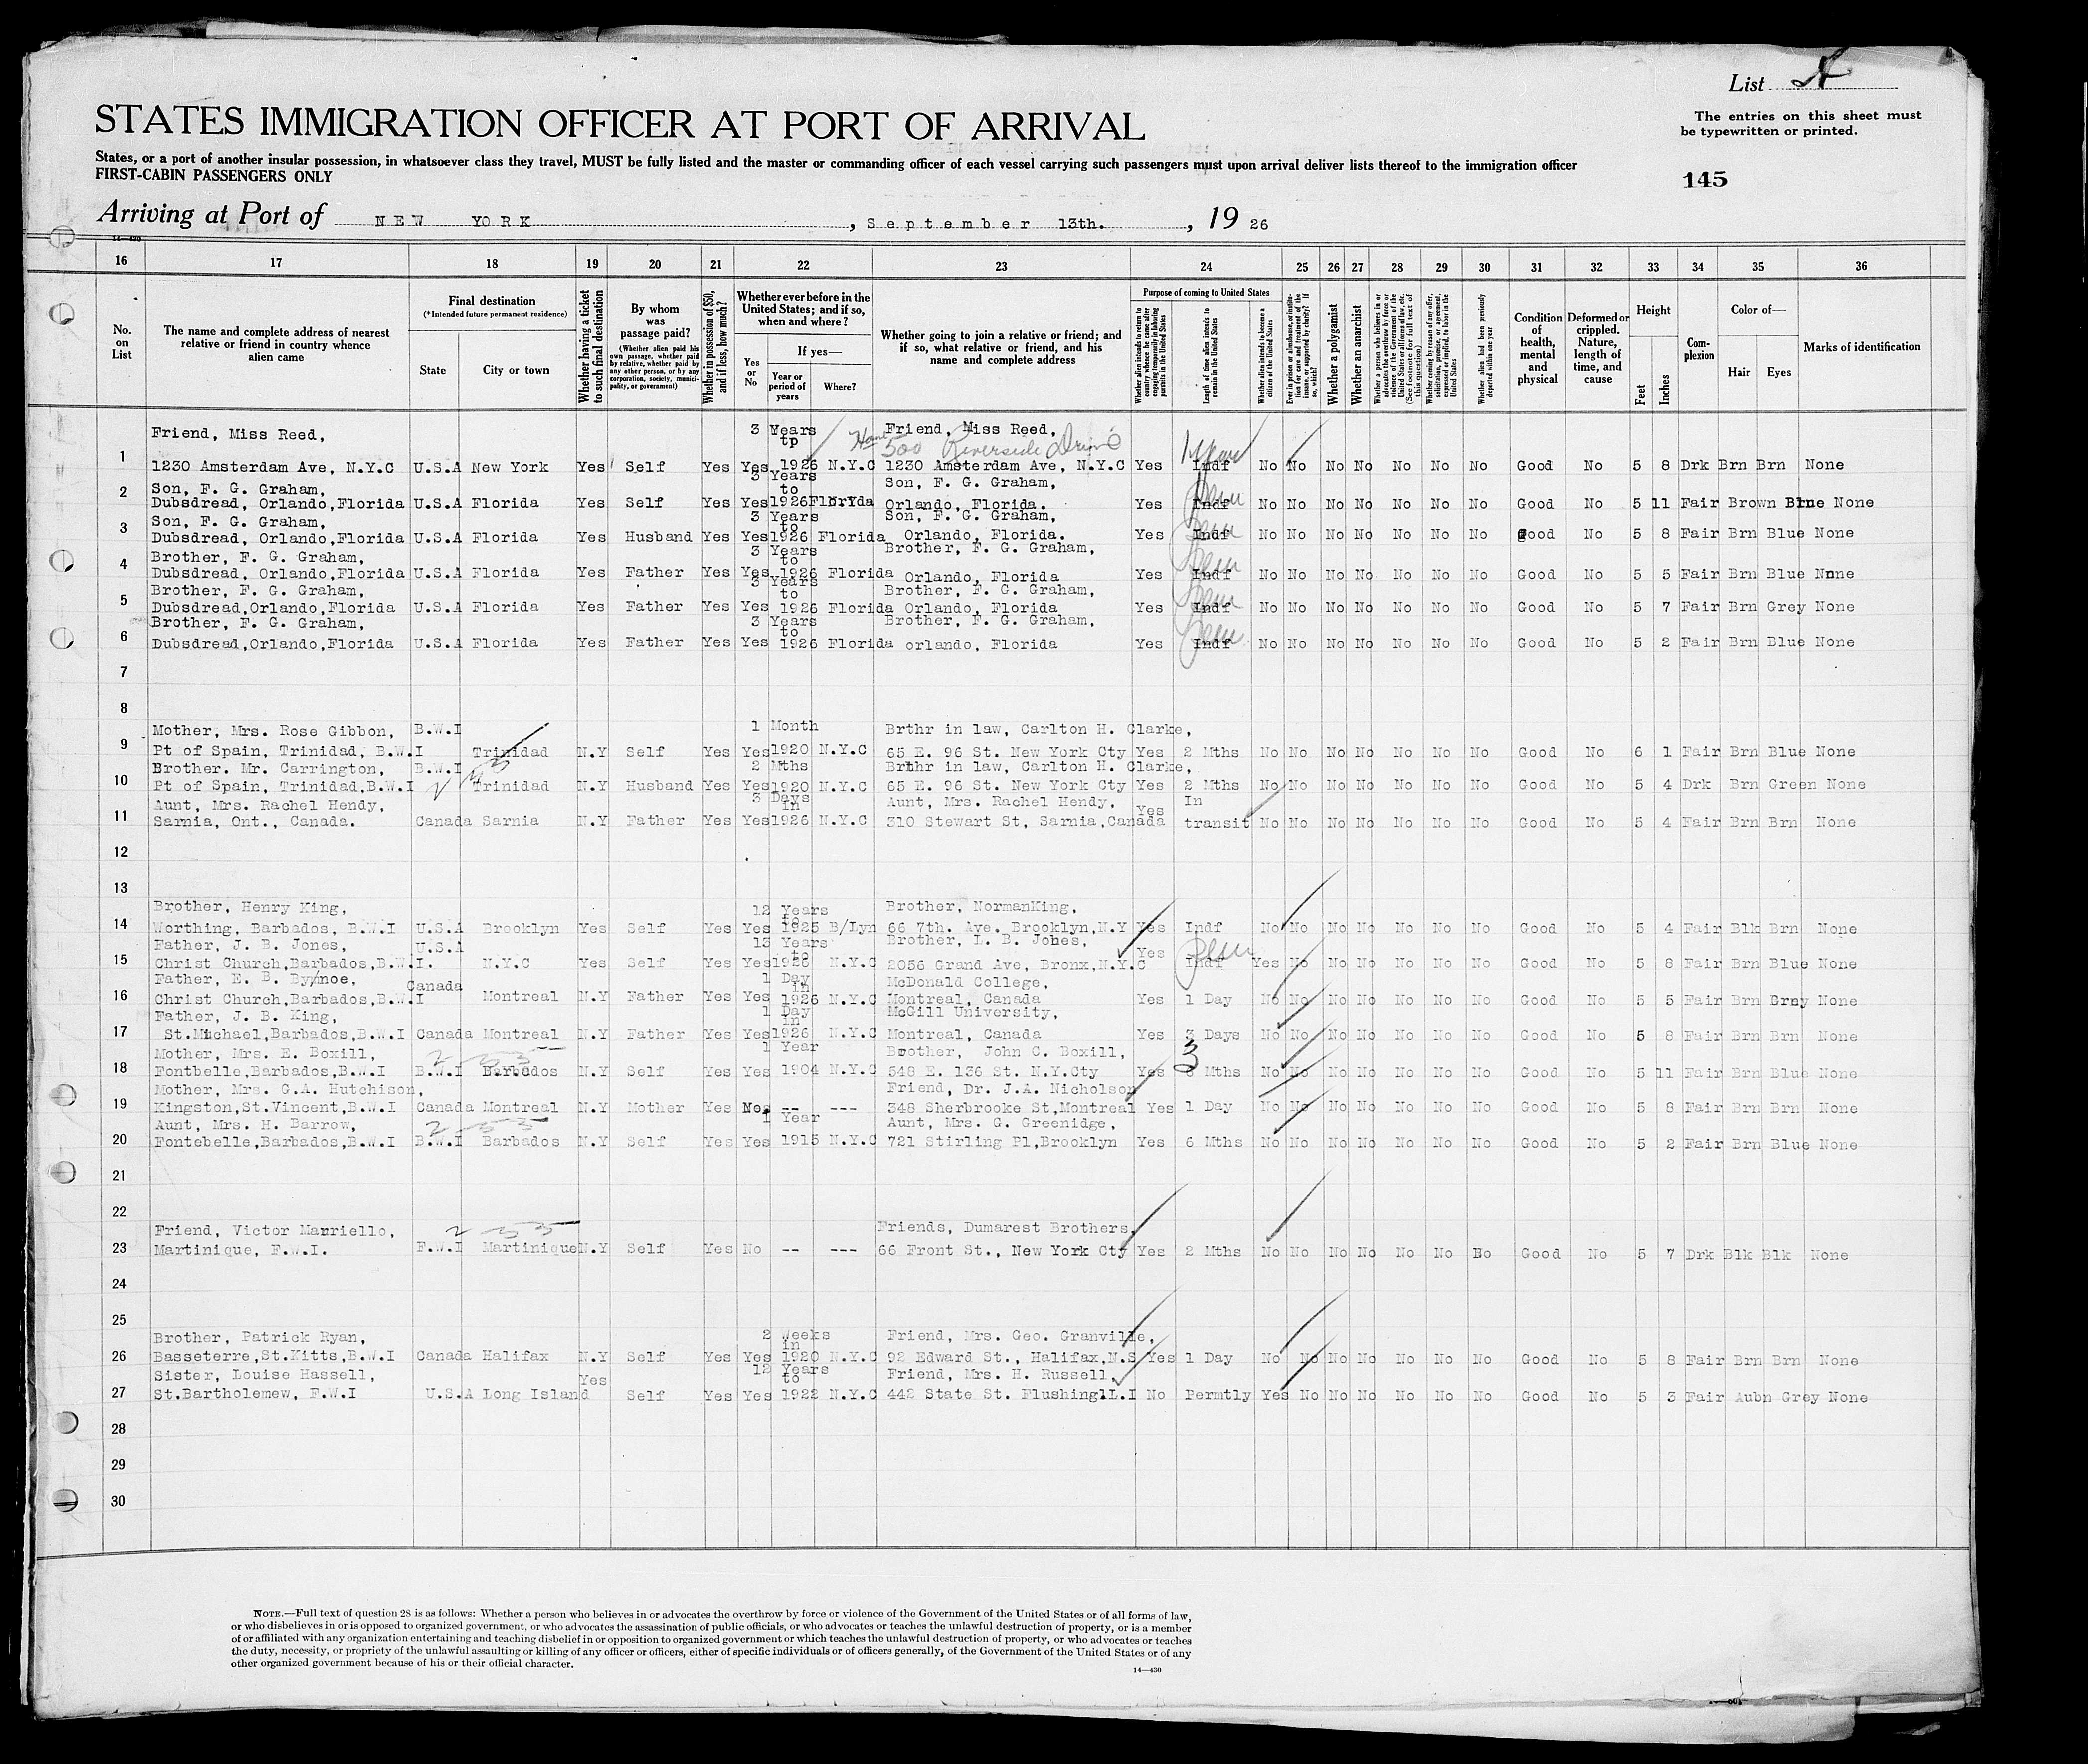 List A
The entries on this sheet must
be typewritten or printed.
STATES IMMIGRATION OFFICER AT PORT OF ARRIVAL
States, or a port of another insular possession, in whatsoever class they travel, MUST be fully listed and the master or commanding officer of each vessel carrying such passengers must upon arrival deliver lists thereof to the immigration officer
FIRST-CABIN PASSENGERS ONLY
145
Arriving at Port of NEW YORK, September 13th., 19 26
14-430
16 17 18 19 20 21 22 23 24 25 26 27 28 29 30 31 32 33 34 35 36
No. on List
The name and complete address of nearest relative or friend in country whence alien came
Final destination
(*Intended future permanent residence)
State
City or town
Whether having a ticket to such final destination
By whom was passage paid?
(Whether alien paid his own passage, whether paid by relative, whether paid by any other person, or by any corporation, society, municipality, or government)
Whether in possession of $50, and if less, how much?
Whether ever before in the United States; and if so, when and where?
Yes or No
If yes—
Year or period of years
Where?
Whether going to join a relative or friend; and if so, what relative or friend, and his name and complete address
Purpose of coming to United States
Whether alien intends to return to country whence he came after engaging temporarily in laboring pursuits in the United States
Length of time alien intends to remain in the United States
Whether alien intends to become a citizen of the United States
Ever in prison or almshouse, or institution for care and treatment of the insane, or supported by charity? If so, which?
Whether a polygamist
Whether an anarchist
Whether a person who believes in or advocates the overthrow by force or violence of the Government of the United States or all forms of law, etc. (See footnote for full text of this question)
Whether coming by reason of any offer, solicitation, promise, or agreement, expressed or implied, to labor in the United States
Whether alien had been previously deported within one year
Condition of health, mental and physical
Deformed or crippled. Nature, length of time, and cause
Height
Feet
Inches
Complexion
Color of—
Hair
Eyes
Marks of identification
Friend, Miss Reed, 3 Years to Friend, Miss Reed,
500 Riverside Drive
1 1230 Amsterdam Ave, N.Y.C U.S.A New York Yes Self Yes Yes 1926 N.Y.C 1230 Amsterdam Ave, N.Y.C Yes 1 year Indf No No No No No No No Good No 5 8 Drk Brn Brn None
Son, F. G. Graham, 3 Years to Son, F. G. Graham,
2 Dubsdread, Orlando,Florida U.S.A Florida Yes Self Yes Yes 1926 Florida Orlando, Florida. Yes Indf No No No No No No No Good No 5 11 Fair Brown Blue None
Son, F. G. Graham, 3 Years to Son, F. G. Graham,
3 Dubsdread, Orlando,Florida U.S.A Florida Yes Husband Yes Yes 1926 Florida Orlando, Florida. Yes Indf No No No No No No No Good No 5 8 Fair Brn Blue None
Brother, F. G. Graham, 3 Years to Brother, F. G. Graham,
4 Dubsdread, Orlando,Florida U.S.A Florida Yes Father Yes Yes 1926 Florida Orlando, Florida Yes Indf No No No No No No No Good No 5 5 Fair Brn Blue Nnne
Brother, F. G. Graham, 3 Years to Brother, F. G. Graham,
5 Dubsdread,Orlando,Florida U.S.A Florida Yes Father Yes Yes 1926 Florida Orlando, Florida Yes Indf No No No No No No No Good No 5 7 Fair Brn Grey None
Brother, F. G. Graham, 3 Years to Brother, F. G. Graham,
6 Dubsdread,Orlando,Florida U.S.A Florida Yes Father Yes Yes 1926 Florida orlando, Florida Yes Indf No No No No No No No Good No 5 2 Fair Brn Blue None
7
8
Mother, Mrs. Rose Gibbon, B.W.I 1 Month Brthr in law, Carlton H. Clarke,
9 Pt of Spain, Trinidad, B.W.I Trinidad N.Y Self Yes Yes 1920 N.Y.C 65 E. 96 St. New York Cty Yes 2 Mths No No No No No No No Good No 6 1 Fair Brn Blue None
Brother. Mr. Carrington, B.W.I 2 Mths Brthr in law, Carlton H. Clarke,
10 Pt of Spain, Trinidad,B.W.I Trinidad N.Y Husband Yes Yes 1920 N.Y.C 65 E. 96 St. New York Cty Yes 2 Mths No No No No No No No Good No 5 4 Drk Brn Green None
Aunt, Mrs. Rachel Hendy, 3 Days in Aunt, Mrs. Rachel Hendy, Yes In
11 Sarnia, Ont., Canada. Canada Sarnia N.Y Father Yes Yes 1926 N.Y.C 310 Stewart St, Sarnia,Canada transit No No No No No No No Good No 5 4 Fair Brn Brn None
12
13
Brother, Henry King, 12 Years to Brother, NormanKing,
14 Worthing, Barbados, B.W.I U.S.A Brooklyn Yes Self Yes Yes 1925 B/Lyn 66 7th. Ave. Brooklyn,N.Y Yes Indf No No No No No No No Good No 5 4 Fair Blk Brn None
Father, J. B. Jones, U.S.A 13 Years to Brother, L. B. Jones, Yes
15 Christ Church,Barbados,B.W.I. N.Y.C Yes Self Yes Yes 1926 N.Y.C 2056 Grand Ave, Bronx,N.Y.C Indf Yes No No No No No No Good No 5 8 Fair Brn Blue None
Father, E. B. Bynoe, Canada 1 Day in McDonald College,
16 Christ Church,Barbados,B.W.I Montreal N.Y Father Yes Yes 1926 N.Y.C Montreal, Canada Yes 1 Day No No No No No No No Good No 5 5 Fair Brn Grey None
Father, J. B. King, 1 Day in McGill University,
17 St.Michael,Barbados,B.W.I Canada Montreal N.Y Father Yes Yes 1926 N.Y.C Montreal, Canada Yes 3 Days No No No No No No No Good No 5 8 Fair Brn Brn None
Mother, Mrs. E. Boxill, 1 Year Brother, John C. Boxill, 3
18 Fontbelle,Barbados,B.W.I B.W.I Barbados N.Y Self Yes Yes 1904 N.Y.C 548 E. 136 St. N.Y.Cty Yes Mths No No No No No No No Good No 5 11 Fair Brn Blue None
Mother, Mrs. G.A. Hutchison, Friend, Dr. J.A. Nicholson
19 Kingston,St.Vincent,B.W.I Canada Montreal N.Y Mother Yes No -- --- 348 Sherbrooke St,Montreal Yes 1 Day No No No No No No No Good No 5 8 Fair Brn Brn None
Aunt, Mrs. H. Barrow, 1 Year Aunt, Mrs. G. Greenidge,
20 Fontebelle,Barbados,B.W.I B.W.I Barbados N.Y Self Yes Yes 1915 N.Y.C 721 Stirling Pl,Brooklyn Yes 6 Mths No No No No No No No Good No 5 2 Fair Brn Blue None
21
22
Friend, Victor Marriello, Friends, Dumarest Brothers,
23 Martinique, F.W.I. F.W.I Martinique N.Y Self Yes No -- --- 66 Front St., New York Cty Yes 2 Mths No No No No No No Bo Good No 5 7 Drk Blk Blk None
24
25
Brother, Patrick Ryan, 2 Weeks in Friend, Mrs. Geo. Granville,
26 Basseterre,St.Kitts,B.W.I Canada Halifax N.Y Self Yes Yes 1920 N.Y.C 92 Edward St., Halifax,N.S Yes 1 Day No No No No No No No Good No 5 8 Fair Brn Brn None
Sister, Louise Hassell, Yes 12 Years to Friend, Mrs. H. Russell,
27 St.Bartholemew, F.W.I U.S.A Long Island Self Yes Yes 1922 N.Y.C 442 State St. Flushing L.I No Permtly Yes No No No No No No Good No 5 3 Fair Aubn Grey None
28
29
30
NOTE.—Full text of question 28 is as follows: Whether a person who believes in or advocates the overthrow by force or violence of the Government of the United States or of all forms of law,
or who disbelieves in or is opposed to organized government, or who advocates the assassination of public officials, or who advocates or teaches the unlawful destruction of property, or is a member
of or affiliated with any organization entertaining and teaching disbelief in or opposition to organized government or which teaches the unlawful destruction of property, or who advocates or teaches
the duty, necessity, or propriety of the unlawful assaulting or killing of any officer or officers, either of specific individuals or of officers generally, of the Government of the United States or of any
other organized government because of his or their official character.
14—430